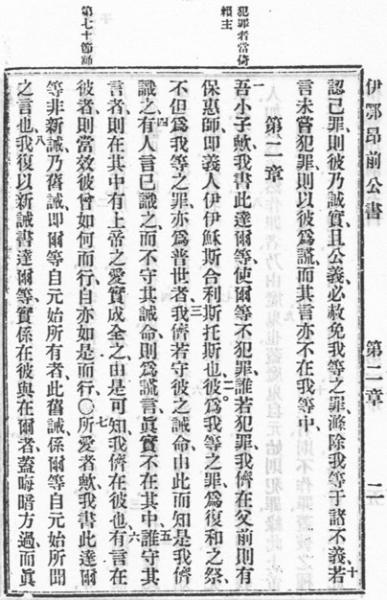 伊鄂昂前公書 第二章 二
認己罪則彼乃誠實且公義必赦免我等之罪滌除我等于諸不義十若
言未嘗犯罪則以彼爲謊而其言亦不在我等中
犯罪者當倚
賴主
第二章
一吾小子歟我書此達爾等使爾等不犯罪誰若犯罪我儕在父前則有
保惠師即義人伊伊穌斯合利斯托斯也二彼爲我等之罪爲復和之祭
不但爲我等之罪亦爲普世者三我儕若守彼之誡命由此而知是我儕
識之四有人言已識之而不守其誡命則爲謊言眞實不在其中五誰守其
言者則在其中有上帝之愛實成全之由是可知我儕在彼也六有言在
第七十節
彼者則當效彼曾如何而行自亦如是而行〇七所愛者歟我書此達爾
等非新誡乃舊誡即爾等自元始所有者此舊誡係爾等自元始所聞
之言也八我復以新誡書達爾等實係在彼與在爾者蓋晦暗方過而眞